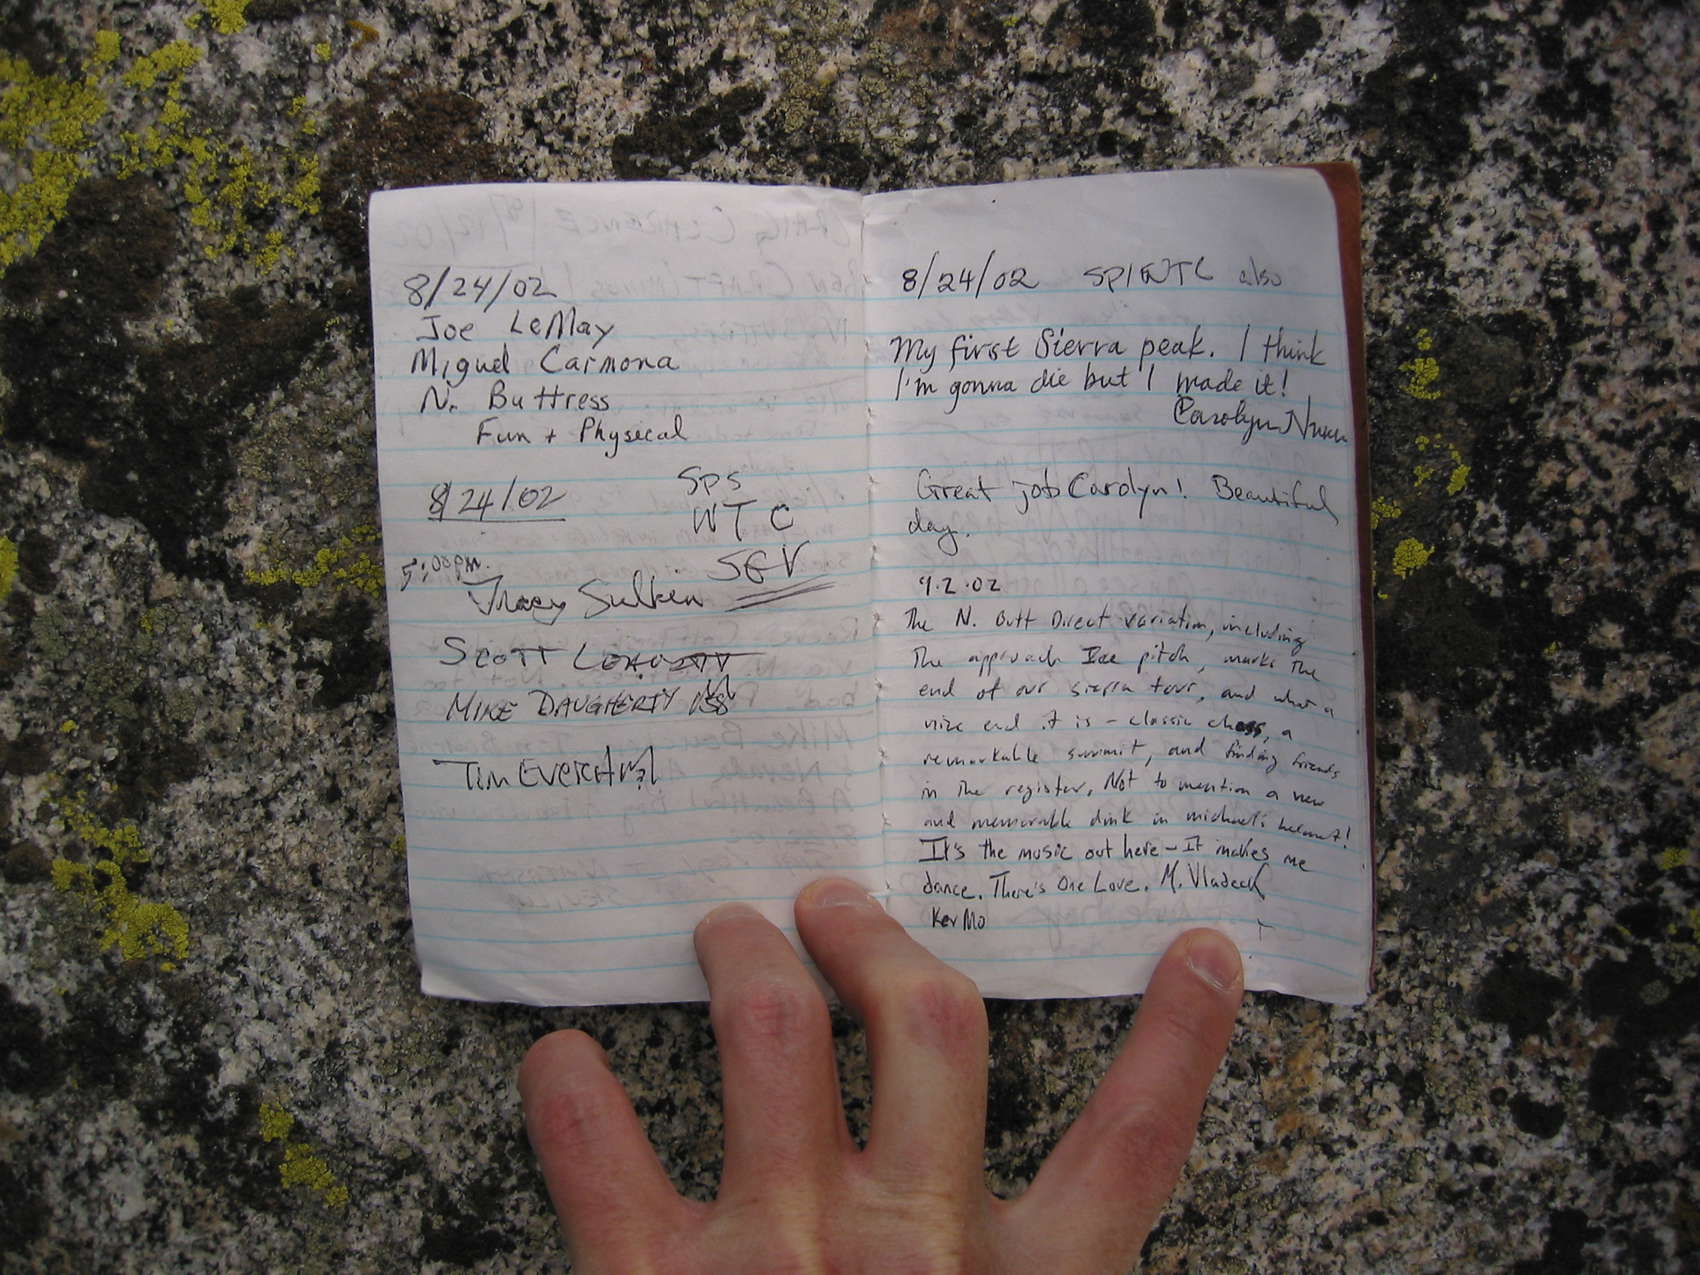 8/24/02
Joe LeMay
Miguel Carmona
N. Buttress
Fun + Physical
8/24/02
SPS
WTC
5:00pm.
SGV
Tracy Sulkin
SCOTT
MIKE DAUGHERTY
TIM
8/24/02 SP/WTC also
My first Sierra peak. I think
I'm gonna die but I made it!
Carolyn
Great job Carolyn! Beautiful
day.
9.2.02
The N. Butt Direct variation, including
the approach Ice pitch, marks the
end of our sierra tour, and what a
nice end it is - classic choss, a
remarkable summit, and finding friends
in the register. Not to mention a new
and memorable dink in michael's helmet!
It's the music out here - It makes me
dance. There's One Love. M. Vladeck
Kev Mo